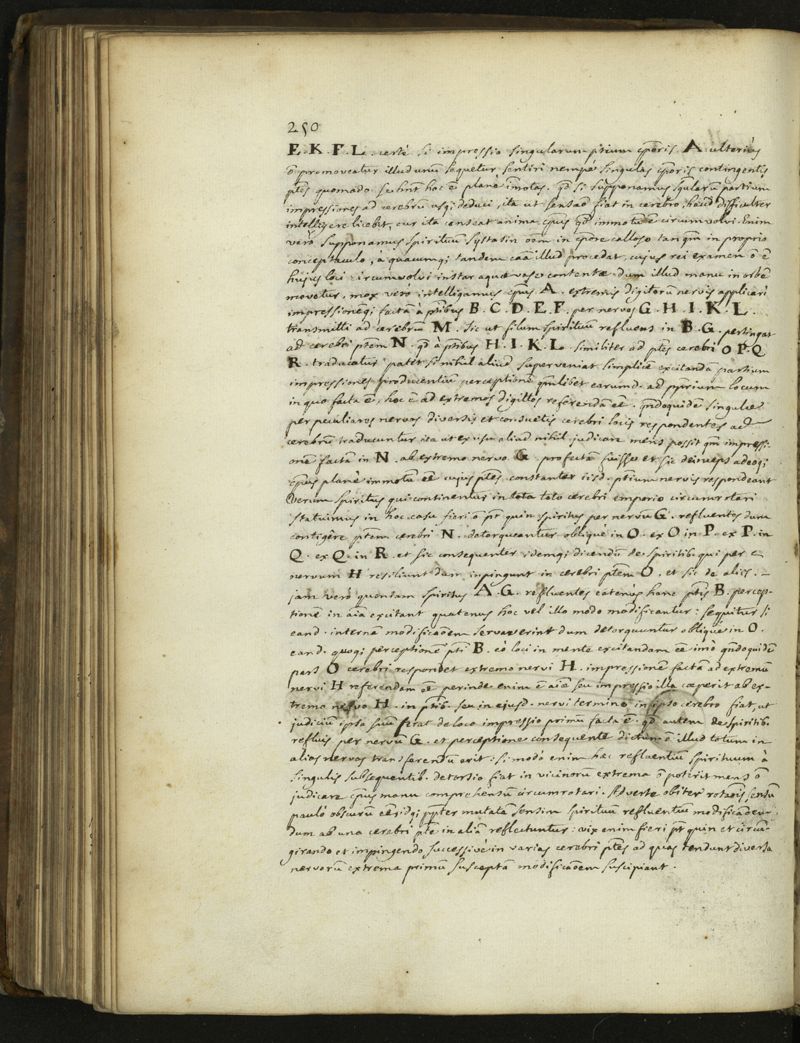 250
E. K. F. L. certè si impressio singularum ptium cporis A ulteriùs
õ promoveatur illud unũ sequetur, sentiri nempè singulas cporis contingentis
ptes quomodo se hñt hoc ẽ planè imotas. qd si supponamus sgularũ partium
impressiones ad cerebrũ usqi deduci, ita ut sensaõ fiat in cerebro, haud difficulter
intelligere licebit, cur ita censeat anima cpus qd imotũ ẽ circumvolvi. Enim
verò supponamus spirituũ systasin oẽm in cpore calloso tanqm in proprio
conceptaculo, à quacumqi tandem caâ illud procedat, cujus rei examen õ ẽ
hujus loci circumvolvi instar aquæ vasco contentæ dum illud manu in orbẽ
movetur, mox verò intelligamus cpus A. extremis digitorũ nervis applicari
impressionẽqi factã à ptibus B. C. D. E. F. per nervos G. H. I. K. L.
transmitti ad cerebrũ M. Sic ut filum spirituũ refluens in B. G. pertingat
ad cerebri ptem N. qd à ptibus H. I. K. L. similiter ad ptes cerebri O P. Q
R. traducatur patet si nihil aliud superveniat simplicẽ excitandã partium
impressiones producentiũ perceptionẽ qmlibet earumd. ad pprium locum
in quo facta ẽ, hoc ẽ ad extremos digittos referendã eẽ. qñdoquidẽ singulæ
per peculiares nervos diversis et consuetis cerebri locis respondentes ad
cerebrũ traducuntur ita ut ex usu aliud nihil judicare mens possit qm impressi
onẽ factã in N. ab extremo nervo G. profectã fuisse et sic deinceps adeoqi
cpus planè immotũ eẽ cujus ptes constanter iisd. ptium nervis respondeant
Verum spiritus qui continentur in toto cerebri emporio circumrotari
statuimus in hoc casu fieri õ pt quin spiritus per nervũ G. refluentes dum
contigêre ptem cerebri N. detorqueantur obliquè in O. ex O in P. ex P. in
Q. ex Q. in R. et sic consequenter idemqi dicendũ de spiritib. qui per
nervum H resiliunt dum inpingunt in cerebri ptem O. et sic de aliis.
jam verò quoniam spiritus A. G. refluentes eatenùs hanc ptis B. percep-
tionẽ in aĩa excitant quatenus hoc vel illo modo modificantur: sequitur si
eand. internã modificaõem servaverint dum detorquuntur obliquè in O.
eand. quoqi perceptionẽ ptis B. eò loci in mente excitandam eẽ imò qñdoquidẽ
pars O cerebri respondet extremo nervi H. impressionẽ factã ad extremũ
nervi H referendam eẽ perinde enim ẽ aĩæ seu impressio illa cœperit ab ex-
tremo nervo H. in ptib. seu in ejusd. nervi termino in ipso cerebro fiat, ut
judiciũ ipsa suũ ferat de loco impressio primũ facta ẽ. qd autem de spiritib.
refluis per nervũ G. et perceptione consequente dictum ẽ illud totum in
alios nervos transferendũ erit. si modò enim hæc refluentiũ spirituum à
singulis subsequentib. detorsio fiat in vicinorũ extrema õ poterit mens õ
judicare cpus manu comprehensũ circumrotari. Adverte obiter rotaõis sensũ
paulò obscurũ ppter mutatã sensim spirituũ refluentiũ modificaõem
dum ab una cerebri pte in aliã reflectuntur. vix enim fieri pt quin et circũ-
girando et impingendo successivè in varias cerebri ptes ad quas tendunt diversa
nervorũ extrema primũ susceptã modificaõem suscipiant.